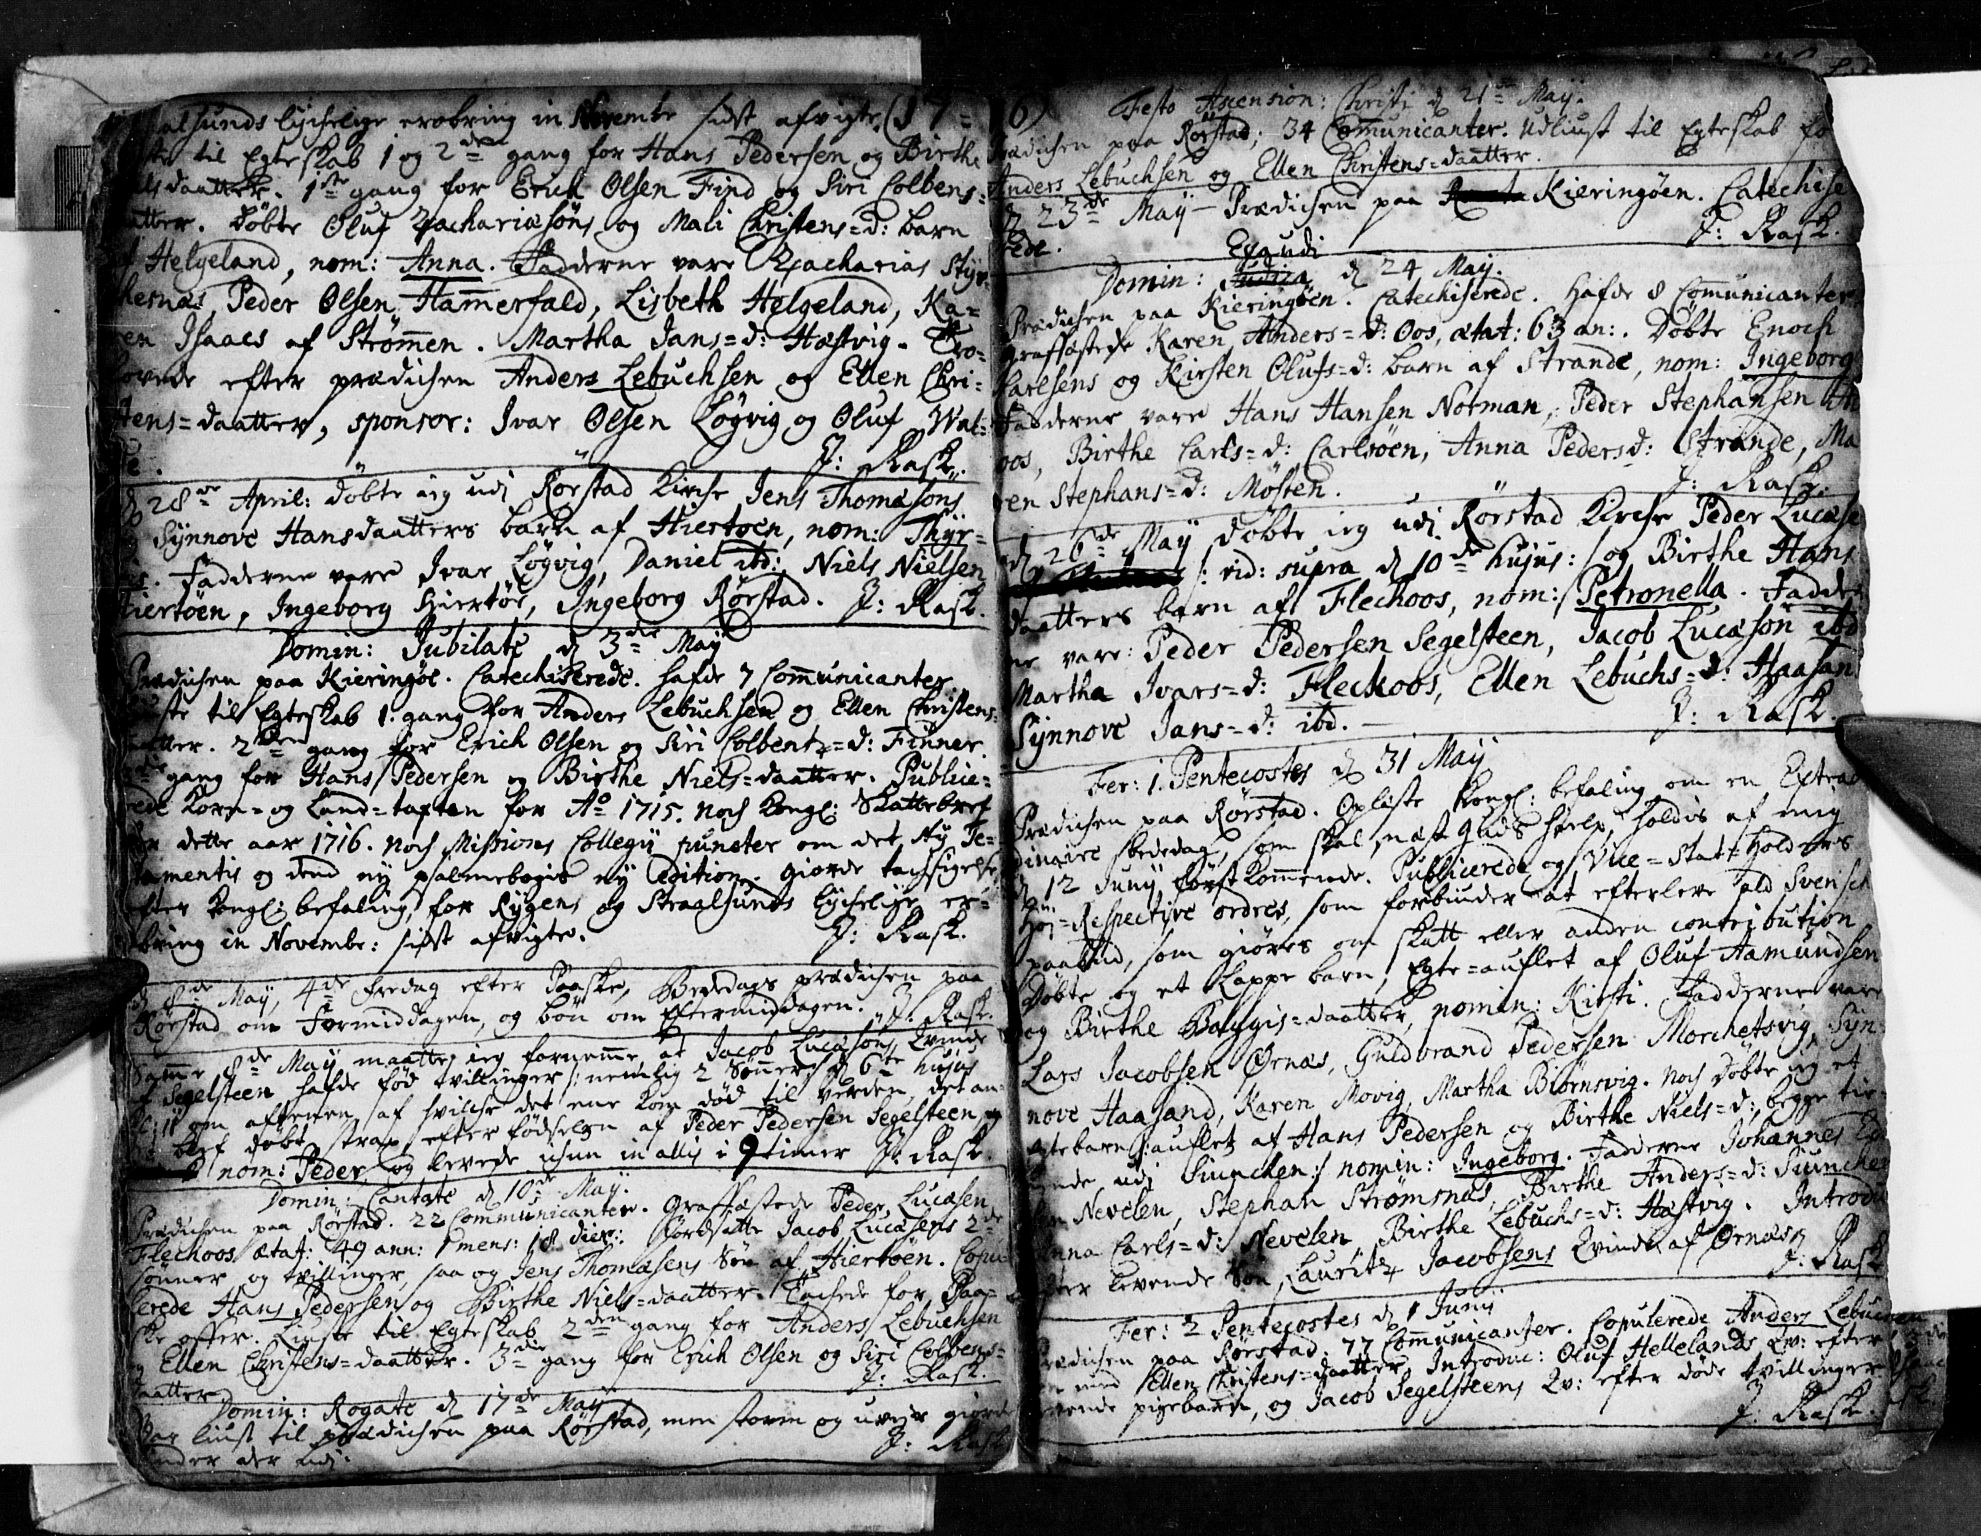 alsunds lychelige erobring in Novembr sidst afvigte. (17=
til Egteskab 1 og 2de gang for Hans Pedersen og Birthe
daatter. 1ste gang for Erich Olsen Find og Siri Colbens=
atter. Döbte Oluf Zachariæsöns og Mali Christens=d: barn
Helgeland, nom: Anna. Fadderne vare Zacharias Styr
hesnæs, Peder Olsen Hammerfald, Lisbeth Helgeland, Ka=
ren Isaacs af Strömmen. Martha Jans=d: Hæstvig. Tro=
lovede efter prædichen Anders Lebuchsen og Ellen Chri=
stens=daatter, sponsor: Ivar Olsen Lögvig og Oluf Wal=
J: Rask.
d 28de April: döbte ieg udj Rörstad Kirche Jens Thomæsöns
Synnove Hansdaatters barn af Hiertöen, nom: Thyr=
Fadderne vare Ivar Lögvig, Daniel ibd:, Niels Nielsen
Hiertöen, Ingeborg Hiertöe, Ingeborg Rörstad. J: Rask.
Domin: Jubilate d 3de May
Prædichen paa Kieringöe. Catechiserede. hafde 7 Communicanter
liuste til Egteskab 1. gang for Anders Lebuchsen og Ellen Christens=
aatter. 2den gang for Erich Olsen og Siri Colbentz=d: Finner.
gang for Hans Pedersen og Birthe Niels=daatter. Publice=
rede Korn= og Land=taxten for Ao 1715. noch Kongl: Skattebref
for dette aar 1716. noch Missions Collegij puncter om det Ny Te=
stamentis og dend ny psalmebogis ny Edition. giorde tachsigelse
efter Kongl: befaling, for Rygens og Straalsunds lychelige er=
obring in Novembr: sidst afvigte. J: Rask.
d 8de May, 4de fredag efter Paaske, Bededags prædichen paa
Rörstad om Formiddagen, og bön om Eftermiddagen. J: Rask.
Samme 8de May maatte ieg fornemme, at Jacob Lucæsöns Qvinde
af Segelsteen hafde fød tvillinger /: nemlig 2 Sönner :/ d 6te hujus
om aftenen, af hvilche det ene kom död til verden, det an=
blef döbt strax efter födselen af Peder Pedersen Segelsteen, og
nom: Peder, og levede ichun in allis i 9 timer J: Rask.
Domin: Cantate d 10de May.
Prædichen paa Rörstad. 22 Communicanter. Graffæstede Peder Lucæsen
Flechoos ætat: 49 ann: 1 mens: 18 dier: Jordsatte Jacob Lucæsens 2de
sönner og tvillinger, saa og Jens Thomæsens Sön af Hiertöen. Copu=
lerede Hans Pedersen og Birthe Niels=daatter. Tachede for Paa=
ske offer. Liuste til Egteskab 2den gang for Anders Lebuchsen
Ellen Christens=daatter. 3de gang for Erich Olsen og Siri Colbens=
daatter J: Rask.
Domin: Rogate d 17de May
Var liust til prædichen paa Rörstad, men storm og uveyr giorde
hinder der udj. J: Rask
16) Festo Ascension: Christi d 21de May.
Prædichen paa Rörstad; 34 Communicanter. Udliust til Egteskab for
Anders Lebuchsen og Ellen Christens=daatter.
d 23de May Prædichen paa Kieringöen. Catechise
rede. J: Rask.
Exaudi
Domin: d 24 May.
Prædichen paa Kieringöen. Catechiserede. hafde 8 Communicanter
Graffæstede Karen Anders=d: Oos, ætat: 63 an:. Döbte Enoch
Carlsens og Kirsten Olufs=d: barn af Strande, nom: Ingeborg
Fadderne vare Hans Hansen Norman, Peder Stephansen
oos, Birthe Carls=d: Carlsöen, Anna Pedersd: Strande, Ma
ren Stephans=d: Mösten. J: Rask.
d 26de May döbte ieg udj Rörstad Kirche Peder Lucæse
/: vid: supra d 10de hujus :/ og Birthe Hans
daatters barn af Flechoos, nom: Petronella. Fadder
ne vare: Peder Pedersen Segelsteen, Jacob Lucæsön ibd
Martha Ivars=d: Flechoos, Ellen Lebuchs=d: Haasan
Synnove Jans=d: ibd. J: Rask.
Fer: 1. Pentecostes d 31 May
Prædichen paa Rörstad. Opliste Kongl: befaling om en Extraor
dinaire bededag, som skal, næst Guds hielp, holdis af mig
d 12 Junij först kommende. Publicerede og Vice=Stat=holders
Höi=Respective ordres, som forbinder at efterleve ald Svensch
paabud, som giöres om skatt eller anden contribution
Döbte og et Lappe barn, Egte=auflet af Oluf Aamundsen
og Birthe Baggis=daatter, nomin: Kirsti. Fadderne vare
Lars Jacobsen Örnæs, Guldbrand Pedersen Morchetsvig, Syn=
nove Haasand, Karen Movig, Martha Biörnsvig. noch döbte ieg et
egtebarn /: auflet af Hans Pedersen og Birthe Niels=d:, begge tie=
nende udj Siunchen :/ nomin: Ingeborg. Fadderne Johannes
Nevelen, Stephan Strömsnæs, Birthe Anders=d: Siunchen
Anna Carls=d: Nevelen, Birthe Lebuchs=d: Hæstvig. Introdu
efter levende Sön, Lauritz Jacobsens Qvinde af Örnæs
J: Rask
Fer: 2 Pentecostes d 1 Junij
Prædichen paa Rörstad: 77 Communicanter. Copulerede Anders Lebuchsen
med Ellen Christens=daatter. Introduc: Oluf Hellelands Qv: efter
levende pigebarn, og Jacob Segelsteens Qv: efter döde tvillinger
J: Rask.